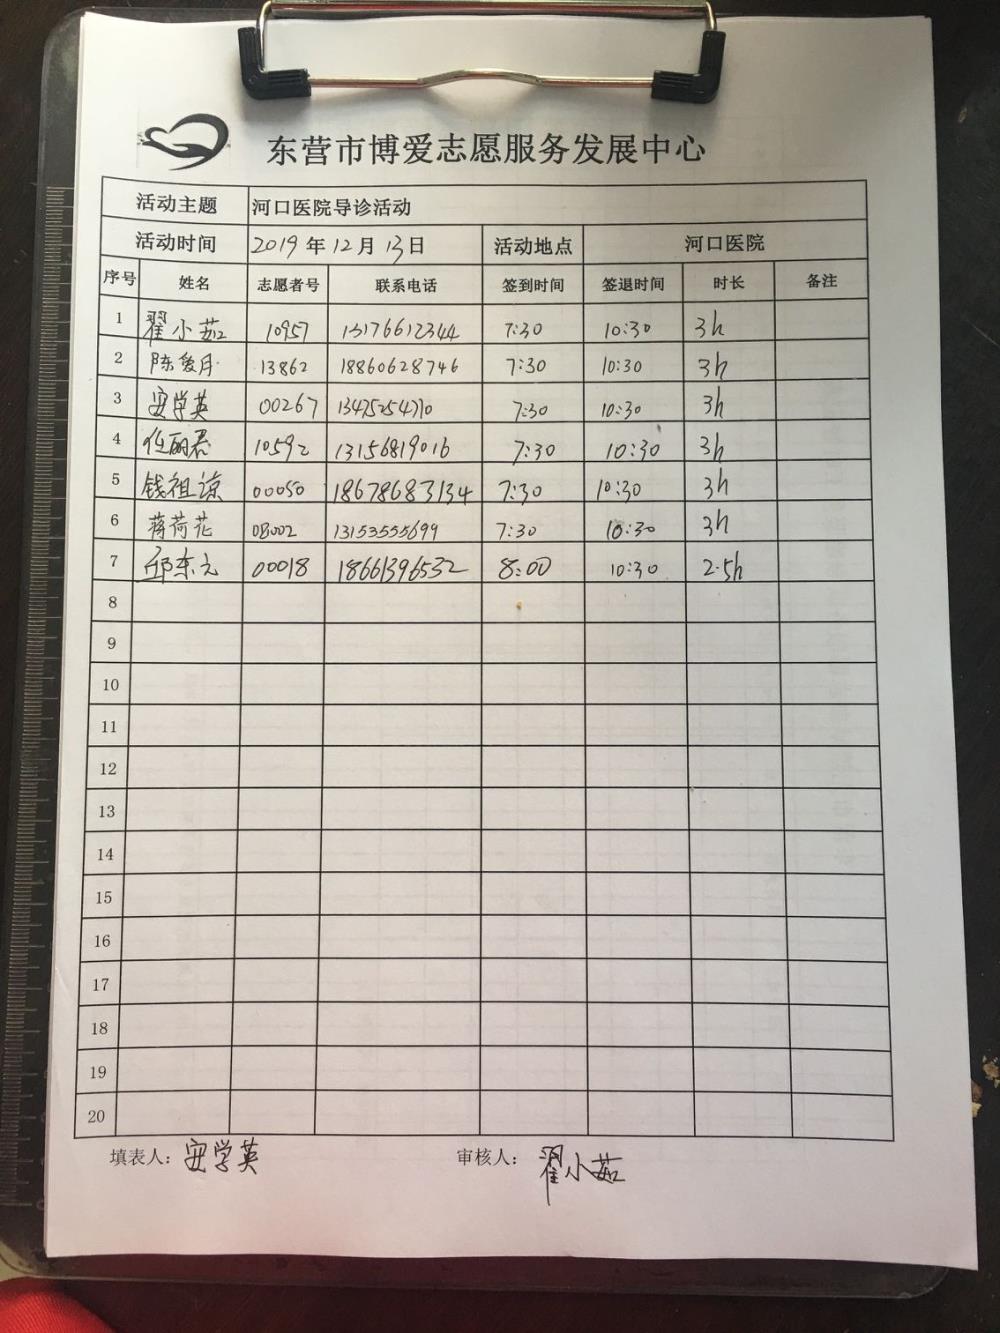 东营市博爱志愿服务发展中心
活动主题 河口医院导诊活动
活动时间 2019年12月13日 活动地点 河口医院
序号 姓名 志愿者号 联系电话 签到时间 签退时间 时长 备注
1 翟小茹 10957 13176612344 7:30 10:30 3h
2 陈爱月 13862 18860628746 7:30 10:30 3h
3 安学英 00267 13475254710 7:30 10:30 3h
4 任丽君 10592 13156819016 7:30 10:30 3h
5 钱祖谅 00050 18678683134 7:30 10:30 3h
6 蒋荷花 08002 13153555699 7:30 10:30 3h
7 邱东元 00018 18661396532 8:00 10:30 2.5h
8
9
10
11
12
13
14
15
16
17
18
19
20
填表人: 安学英 审核人: 翟小茹